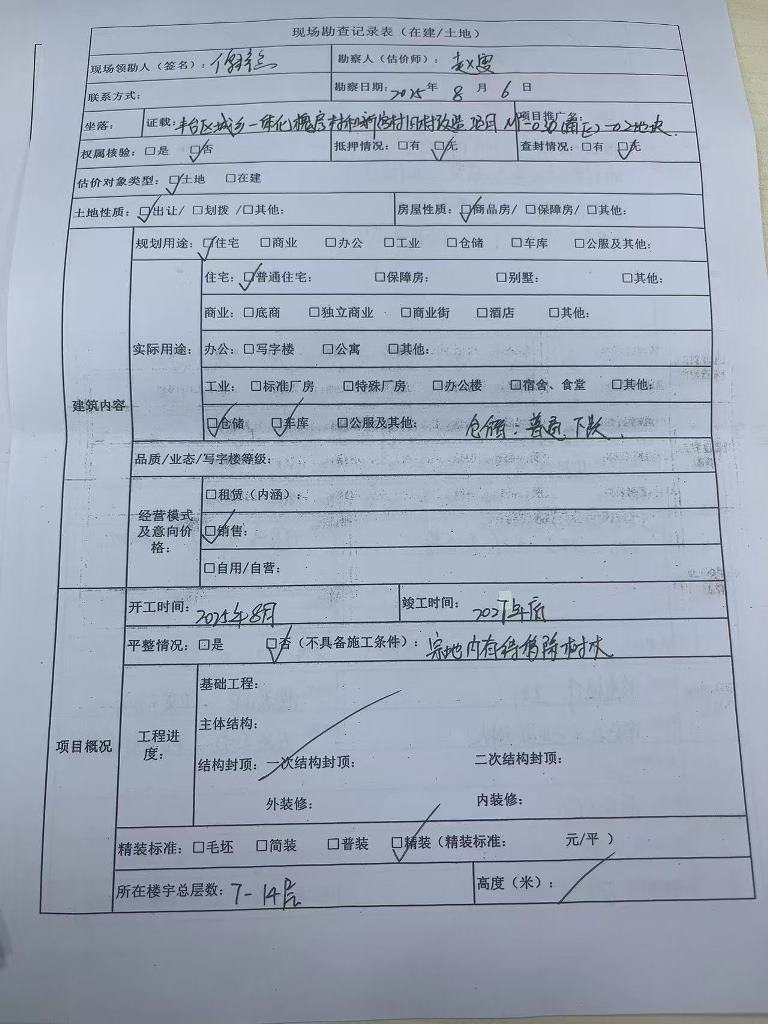 现场勘查记录表（在建/土地）
现场领勘人（签名）： 勘察人（估价师）：
联系方式： 勘察日期：2025年 8 月 6 日
坐落： 证载：丰台区城乡一体化槐房村和新宫村旧村改造项目 项目推广名：
权属核验：□是 ☑否 抵押情况：□有 ☑无 查封情况：□有 ☑无
估价对象类型：☑土地 □在建
土地性质：☑出让/ □划拨 /□其他： 房屋性质：☑商品房/ □保障房/ □其他：
建筑内容
规划用途：☑住宅 □商业 □办公 □工业 □仓储 □车库 □公服及其他：
实际用途：
住宅：☑普通住宅： □保障房： □别墅： □其他：
商业：□底商 □独立商业 □商业街 □酒店 □其他：
办公：□写字楼 □公寓 □其他：
工业： □标准厂房 □特殊厂房 □办公楼 □宿舍、食堂 □其他：
☑仓储 ☑车库 □公服及其他： 仓储：普通 下跃
品质/业态/写字楼等级：
经营模式及意向价格：
□租赁（内涵）：
☑销售：
□自用/自营：
项目概况
开工时间：2025年8月 竣工时间：2027年底
平整情况：□是 ☑否（不具备施工条件）：宗地内有待移除树木
工程进度：
基础工程：
主体结构：
结构封顶：一次结构封顶： 二次结构封顶：
外装修： 内装修：
精装标准：□毛坯 □简装 □普装 ☑精装（精装标准： 元/平 ）
所在楼宇总层数：7-14层 高度（米）：